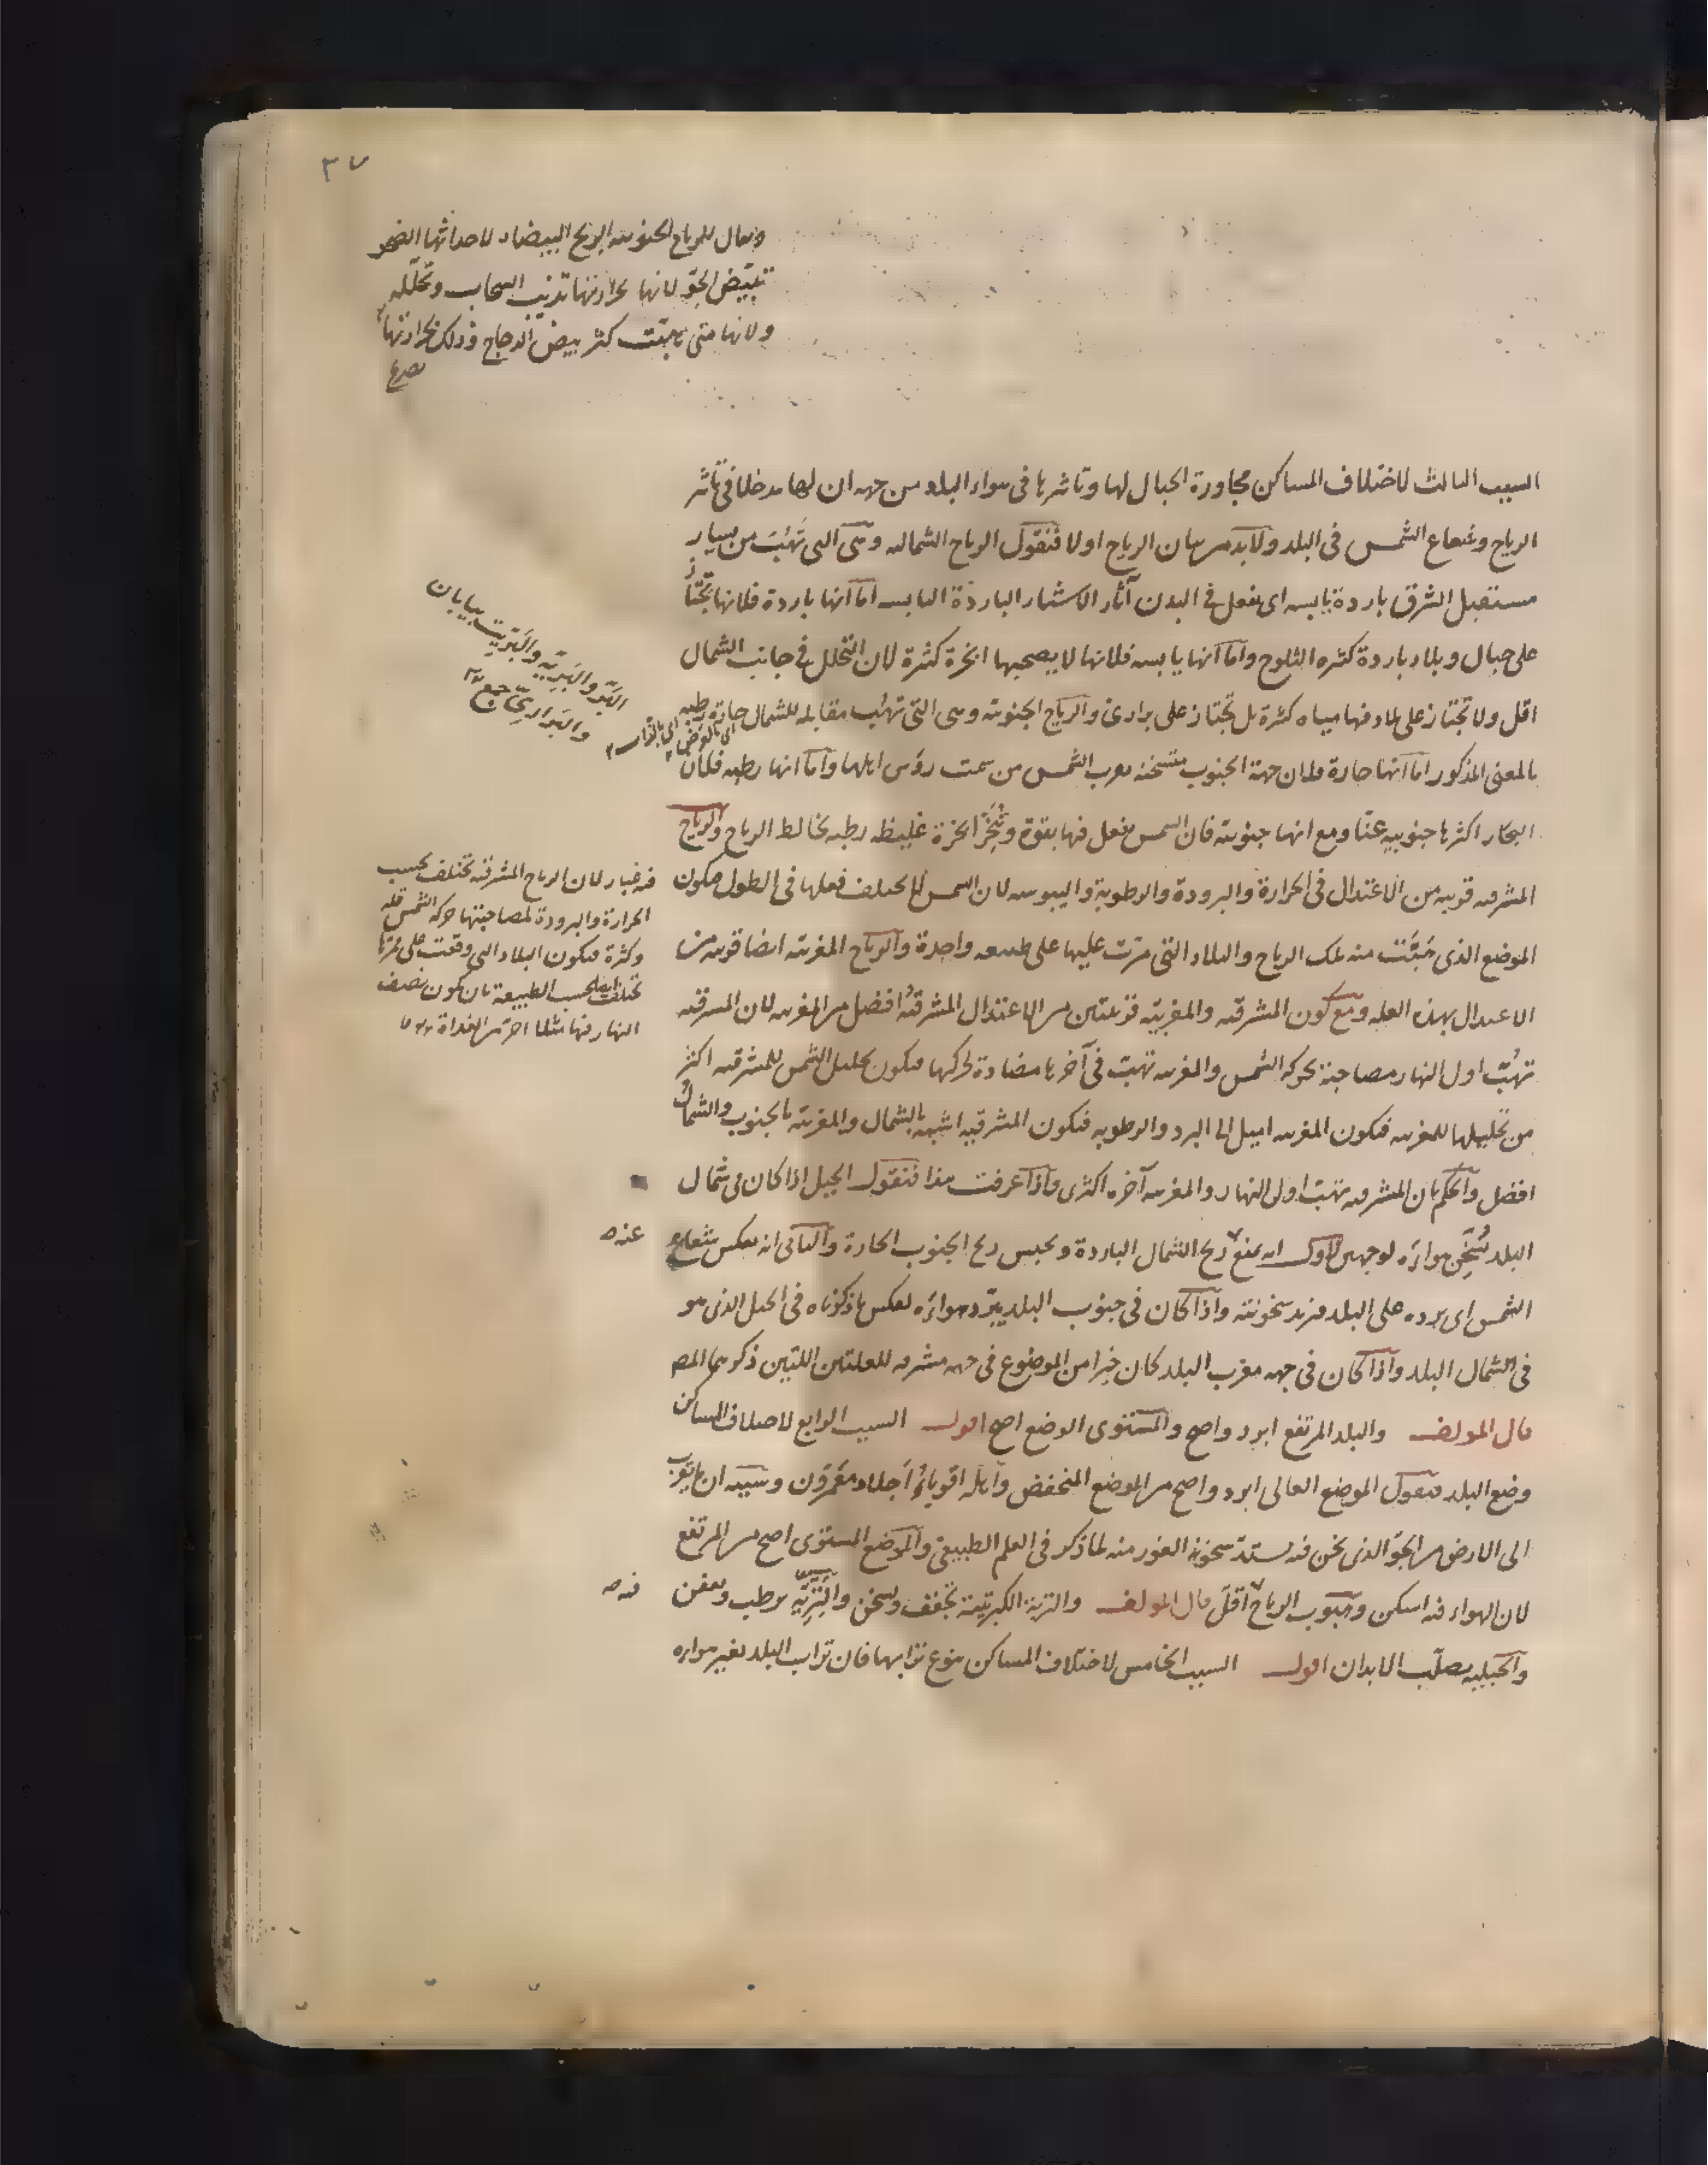 ٣٧
ويقال للرياح الجنوبية الريح البيضاء لاحداثها الصحو
تبيّض الجوّ لانها بحرارتها تذيب السحاب وتحلّله
ولانها متى هبّت كثر بيض الدجاج وذلك لحرارتها
السبب الثالث لاختلاف المساكن مجاورة الجبال لها وتاثيرها فى هواء البلد من جهة ان لها مدخلا فى تاثير
الرياح وشعاع الشمس فى البلد ولابد من بيان الرياح اولا فنقول الرياح الشمالية وهى التى تهُبّ من يسار
مستقبل الشرق باردة يابسة اى يفعل فى البدن آثار الاشياء الباردة اليابسة اما انها باردة فلانها تجتاز
على جبال وبلاد باردة كثيرة الثلوج واما انها يابسة فلانها لا يصحبها ابخرة كثيرة لان التحلل فى جانب الشمال
اقل ولا تجتاز على بلاد فيها مياه كثيرة بل تجتاز على برارى والرياح الجنوبية وهى التى تهُب مقابلة للشمال حارة رطبة
البرّ والبريّة والبرّيت بيابان
والبرارىّ جمع
اى بالعرض لا بالذات
بالمعنى المذكور اما انها حارة فلان جهة الجنوب متسخنة بقرب الشمس من سمت رؤس اهلها واما انها رطبة فلان
البحار اكثرها جنوبية عنّا ومع انها جنوبية فان الشمس يفعل فيها بقوة وتُبَخّر ابخرة غليظة رطبة تخالط الرياح والرياح
المشرقية قريبة من الاعتدال فى الحرارة والبرودة والرطوبة واليبوسة لان الشمس لا يختلف فعلها فى الطول فيكون
الموضع الذى هَبَّت منه تلك الرياح والبلاد التى مرّت عليها على طبيعة واحدة والرياح المغربية ايضا قريبة من
الاعتدال بهذه العلة ومع كون المشرقية والمغربية قريبتين من الاعتدال المشرقيةُ افضل من المغربية لان المشرقية
تهُبّ اول النهار مصاحبة لحركة الشمس والمغربية تهبّ فى آخره مضادة لحركتها فيكون تحليل الشمس للمشرقية اكثر
من تحليلها للمغربية فيكون المغربية اميل الى البرد والرطوبة فيكون المشرقية اشبه بالشمال والمغربية بالجنوب والشمالُ
افضل والحكم بان المشرقية تهبّ اول النهار والمغربية آخره اكثرى واذا عرفت هذا فنقول الجبل اذا كان فى شمال
البلد تُسَخِّن هواءَه لوجهين الاول انه يمنع ريح الشمال الباردة ويحبس ريح الجنوب الحارة والثانى انه يعكس شعاع
الشمس اى يرده على البلد فيزيد سخونته واذا كان فى جنوب البلد يبرّد هواءَه لعكس ما ذكرناه فى الجبل الذى هو
فى الشمال البلد واذا كان فى جهة مغرب البلد كان خيرا من الموضوع فى جهة مشرقه للعلتين اللتين ذكرهما المص
قال المولف والبلد المرتفع ابرد واصح والمستوى الوضع اصح اقول السبب الرابع لاختلاف المساكن
وضع البلد فنقول الموضع العالى ابرد واصح من الموضع المنخفض واهله اقوياءُ اَجلاد معَمَّرون وسببه ان ما يقرب
الى الارض من الجوّ الذى نحن فيه يستدّ سخونة الغور منه لما ذكر فى العلم الطبيعى والموضع المستوى اصح من المرتفع
لان الهواء فيه اسكن وهبوب الرياح اقلّ قال المولف والتربة الكبريتية تجفف وتسخن والنَزِيّة يرطب ويعفن
والجبلية يصلّب الابدان اقول السبب الخامس لاختلاف المساكن نوع ترابها فان تراب البلد يغير هواءه
فيه غبار لان الرياح المشرقية تختلف بحسب
الحرارة والبرودة لمصاحبتها حركة الشمس قلة
وكثرة فيكون البلاد التى وقعت على ممرّها
تختلف ايضا بحسب الطبيعة بان يكون نصف
النهار فيها مثلا احرّ من الغداة
عنه
فيه